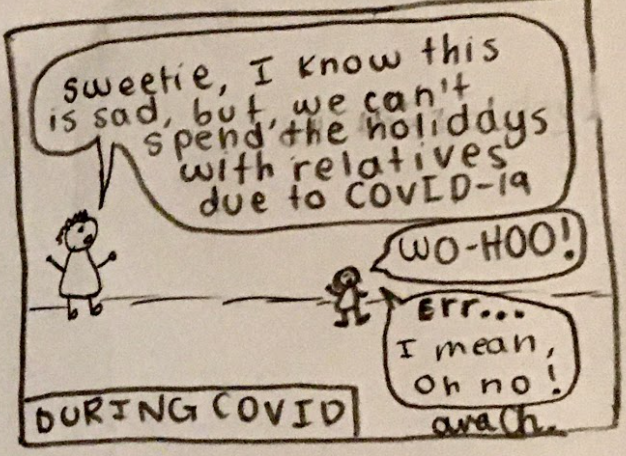 sweetie, I know this
is sad, but, we can't
spend the holidays
with relatives
due to COVID-19
WO-HOO!
Err...
I mean,
Oh no!
DURING COVID
ava Ch.